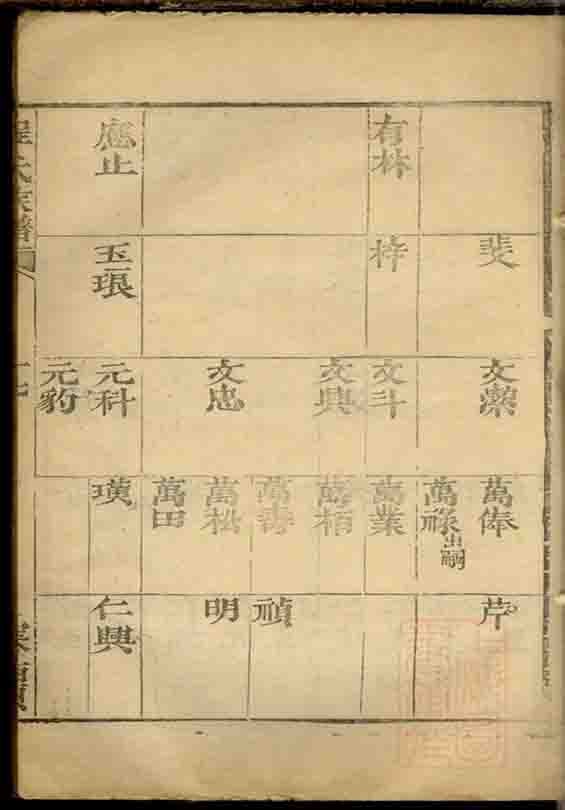 有林
應止
斐
梓
玉琅
文斗
文典
文忠
元科
元豹
萬俸
萬祿出嗣
萬業
萬栢
萬壽
萬松
萬田
璜
芹
禎
明
仁興